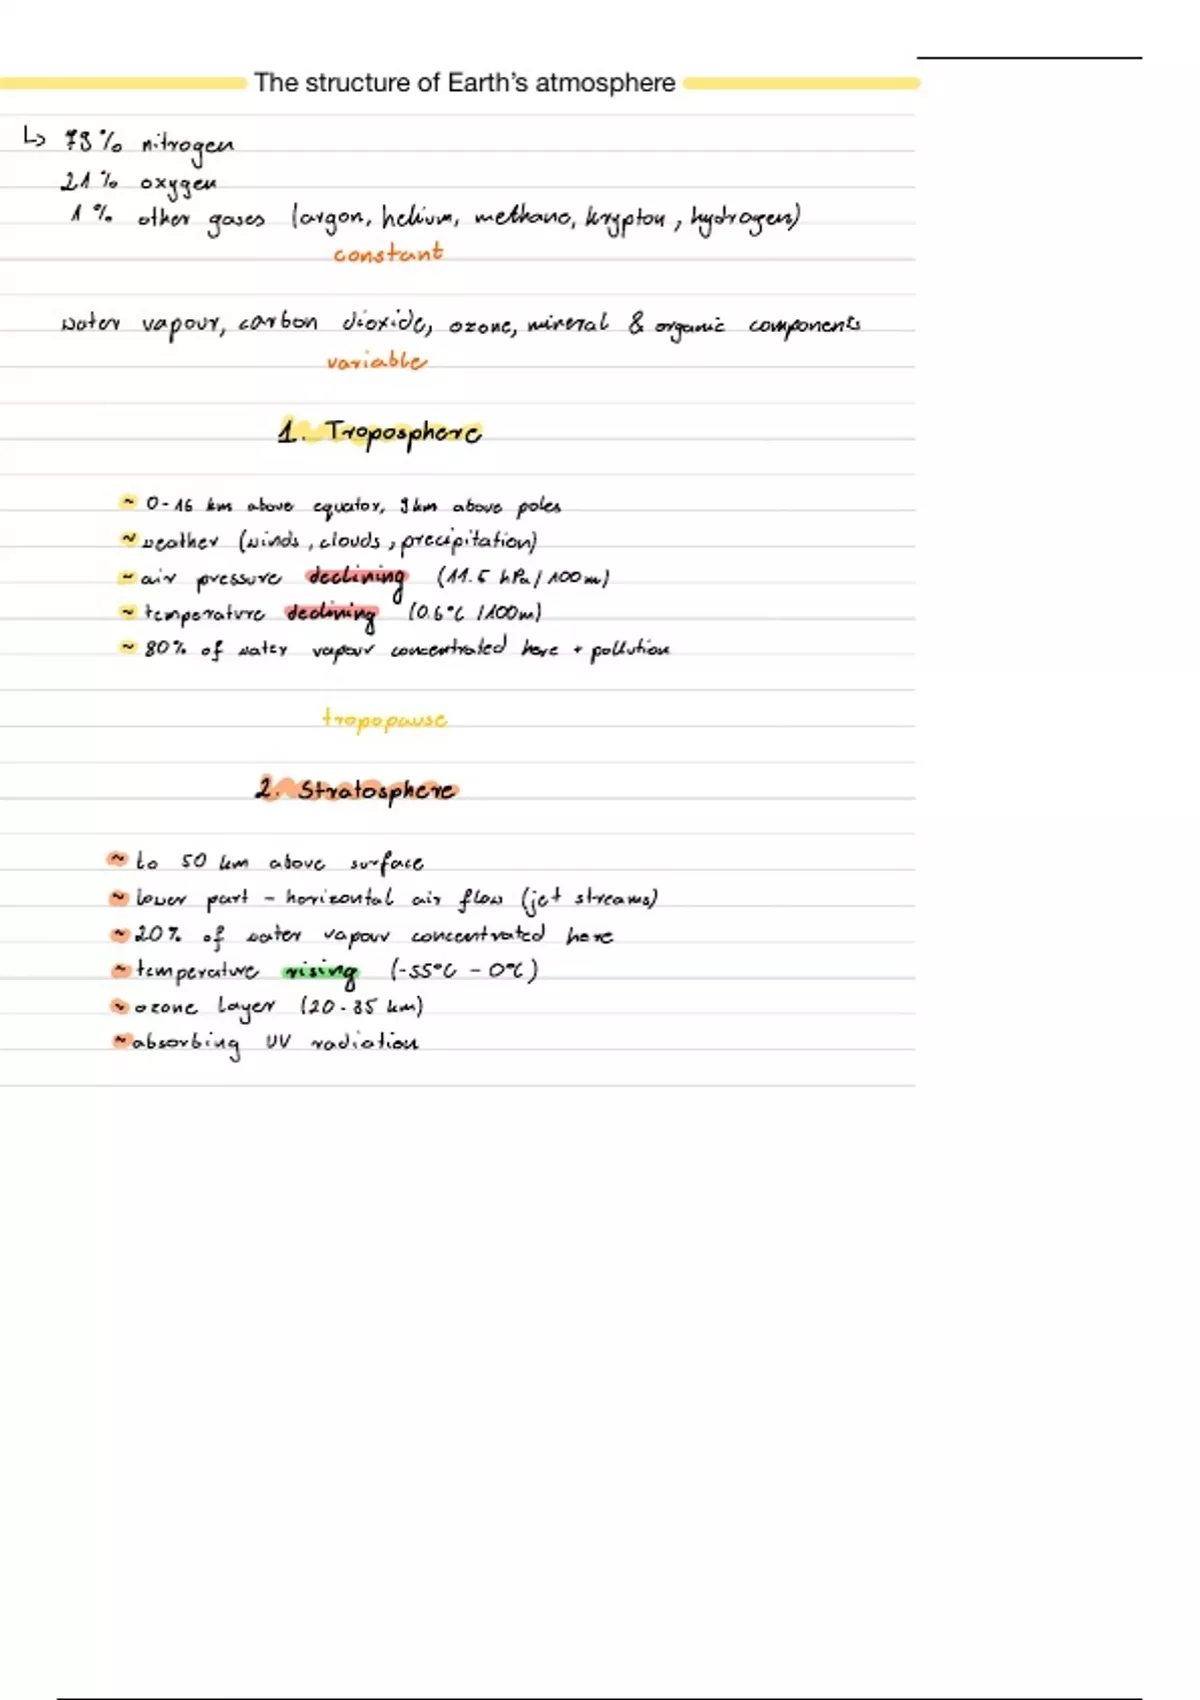 The structure of Earth's atmosphere
↳ 79% nitrogen
21% oxygen
1% other gases (argon, helium, methane, krypton, hydrogen)
constant
water vapour, carbon dioxide, ozone, mineral & organic components
variable
1. Troposphere
~ 0-16 km above equator, 9km above poles
~ weather (winds, clouds, precipitation)
~ air pressure declining (11.5 hPa/100m)
~ temperature declining (0.6°C/100m)
~ 80% of water vapour concentrated here + pollution
tropopause
2. Stratosphere
~ to 50 km above surface
~ lower part - horizontal air flow (jet streams)
~ 20% of water vapour concentrated here
~ temperature rising (-55°C - 0°C)
~ ozone layer (20-35 km)
~ absorbing UV radiation